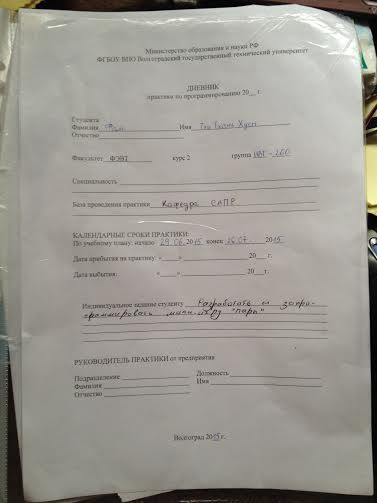 Министерство образования и науки РФ
ФГБОУ ВПО Волгоградский государственный технический университет
ДНЕВНИК
практики по программированию 20__ г.
Студента
Фамилия Имя Тхи Тхань Хуен
Отчество
Факультет ФЭВТ курс 2 группа ИВТ-260
Специальность
База проведения практики Кафедра САПР
КАЛЕНДАРНЫЕ СРОКИ ПРАКТИКИ:
По учебному плану: начало 29.06.2015 конец 26.07 2015
Дата прибытия на практику: «____» 20___ г.
Дата выбытия: «____» 20___ г.
Индивидуальное задание студенту Разработать и запро-
граммировать мини-игру "пары"
РУКОВОДИТЕЛЬ ПРАКТИКИ от предприятия
Подразделение Должность
Фамилия Имя
Отчество
Волгоград 2015 г.